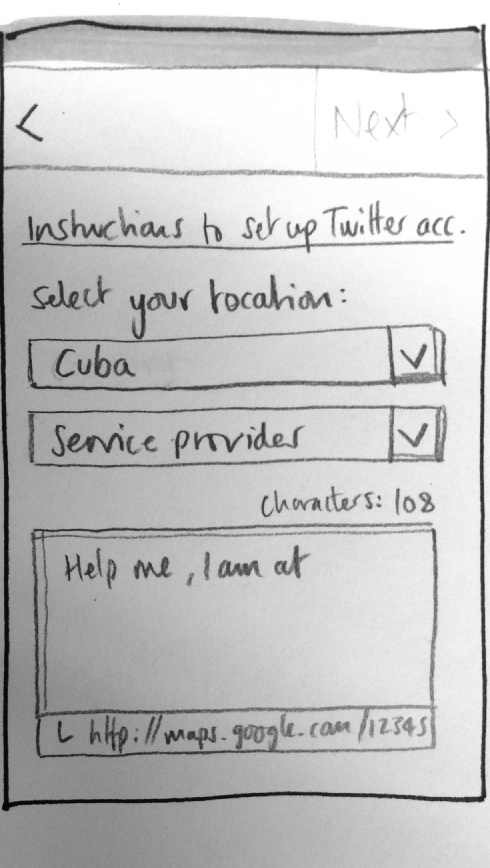 < Next >
Instructions to set up Twitter acc.
Select your location:
Cuba
Service provider
Characters: 108
Help me, I am at
http://maps.google.com/12345